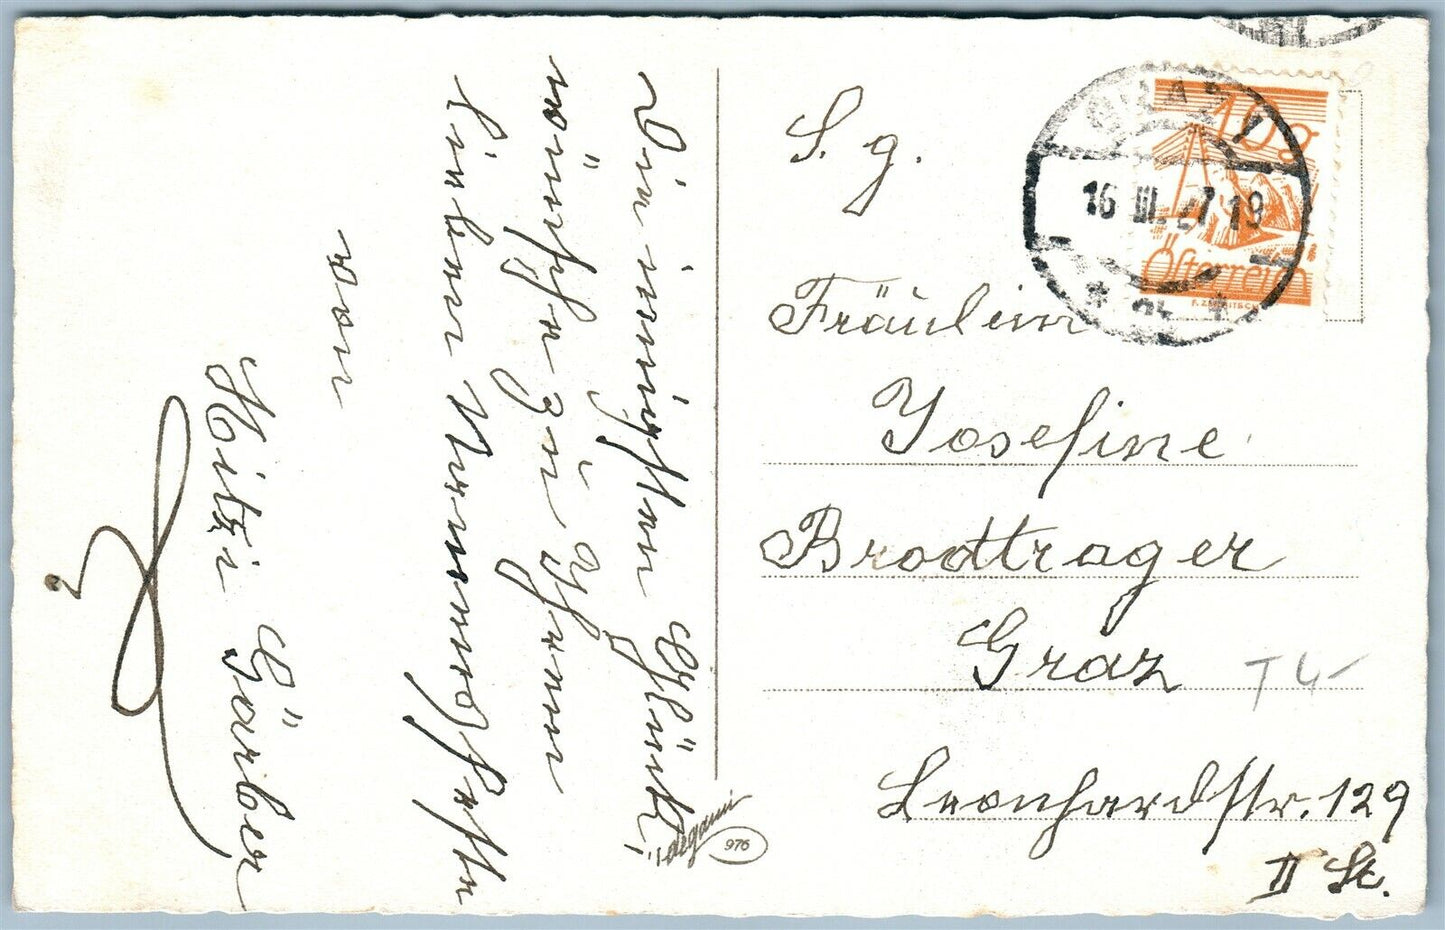 Die innigsten Glück-
wünsche zu Ihrem
lieben Namensfeste
von
Mitzi Gärber
S. g.
Fräulein
Josefine
Brodtrager
Graz
Leonhardstr. 129
II St.
T 4-
degami
976
GRAZ 1
16 III. 27 19
* *
10g
Österreich